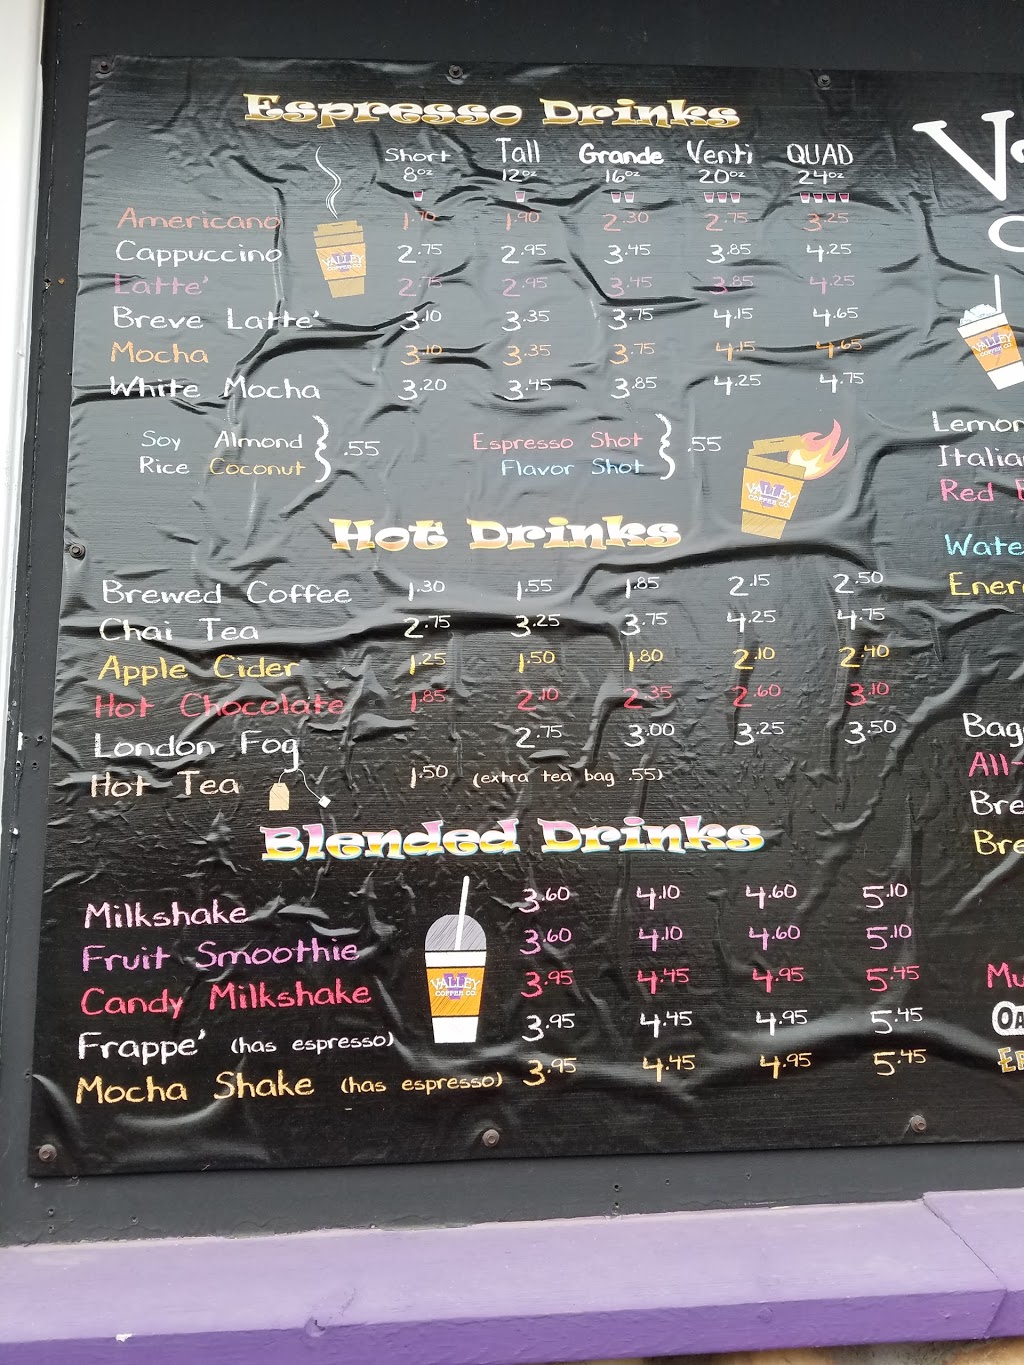 Espresso Drinks
Short Tall Grande Venti QUAD
8oz 12oz 16oz 20oz 24oz
Americano 1.70 1.90 2.30 2.75 3.25
Cappuccino 2.75 2.95 3.45 3.85 4.25
Latte' 2.75 2.95 3.45 3.85 4.25
Breve Latte' 3.10 3.35 3.75 4.15 4.65
Mocha 3.10 3.35 3.75 4.15 4.65
White Mocha 3.20 3.45 3.85 4.25 4.75
Soy Almond
Rice Coconut } .55
Espresso Shot
Flavor Shot } .55
VALLEY
COFFEE CO.
VALLEY
COFFEE CO.
Hot Drinks
Brewed Coffee 1.30 1.55 1.85 2.15 2.50
Chai Tea 2.75 3.25 3.75 4.25 4.75
Apple Cider 1.25 1.50 1.80 2.10 2.40
Hot Chocolate 1.85 2.10 2.35 2.60 3.10
London Fog 2.75 3.00 3.25 3.50
Hot Tea 1.50 (extra tea bag .55)
Blended Drinks
Milkshake 3.60 4.10 4.60 5.10
Fruit Smoothie 3.60 4.10 4.60 5.10
Candy Milkshake 3.95 4.45 4.95 5.45
Frappe' (has espresso) 3.95 4.45 4.95 5.45
Mocha Shake (has espresso) 3.95 4.45 4.95 5.45
VALLEY
COFFEE CO.
VALLEY
COFFEE CO.
Lemon
Italia
Red
Wate
Ener
Bag
All-
Bre
Bre
Mu